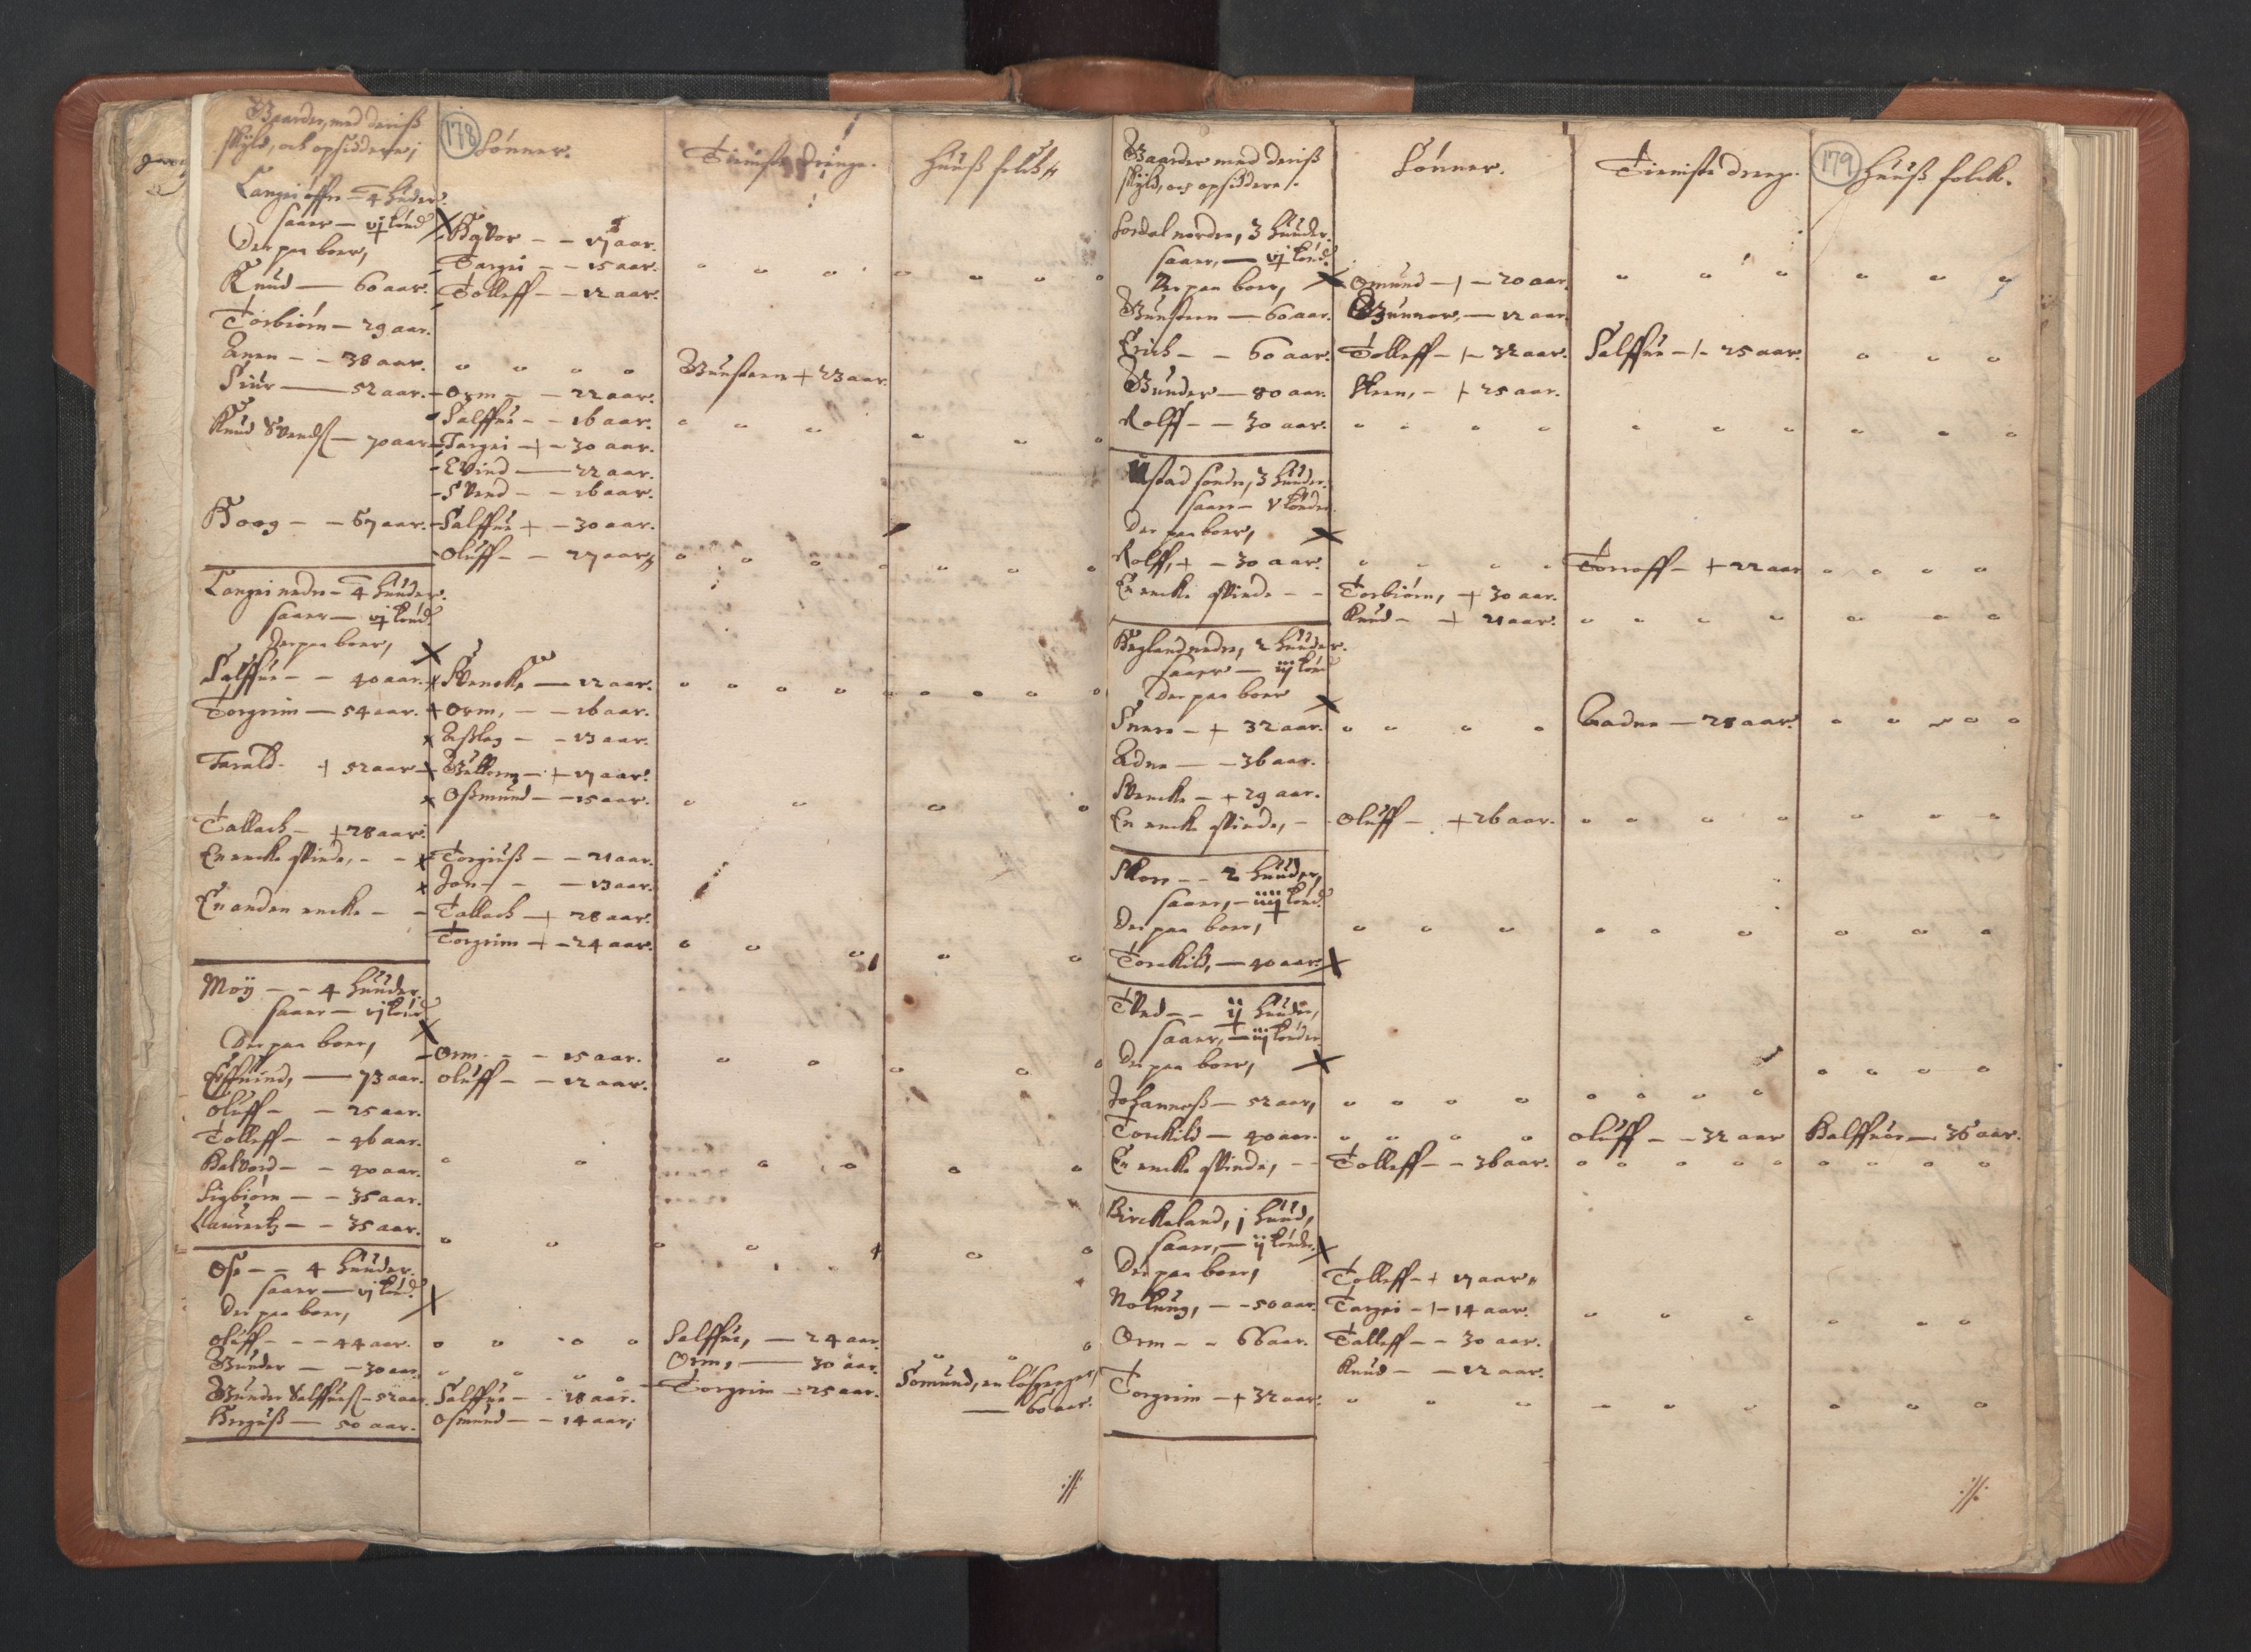 Gaarder, med deriß
skyld, och opsiddere,
178
Sønner.
Tieniste drenge.
Huuß folck
Langei øffre - 4 huder.
saaer - vj tønd
Der paa boer,
Knud - 60 aar.
Torbiørn - 29 aar.
Anen - - 38 aar.
Siur - 52 aar.
Knud Svends - 70 aar
Boog - - 67 aar.
Targei - - 15 aar.
Tolleff - - 12 aar.
Gunstem + 23 aar.
Orm - - 22 aar.
Salffue - - 16 aar.
Targei + - 30 aar.
Evind - 22 aar.
Svend - - 16 aar.
Salffue + - 30 aar.
Oluff - - 27 aar
Langei nedre - 4 huder.
saaer - vj tønd
Der paa boer,
Salffue - - 40 aar.
Torgrim - 54 aar.
Tarald - + 52 aar
Tallach - + 28 aar.
En encke qvinde, - -
En anden encke - -
Svencke - 12 aar.
Orm, - - 16 aar.
Aßlag - - 13 aar.
Guttorm - + 17 aar.
Oßmund - - 15 aar.
Torgiuß - - 21 aar.
Jon - - - 13 aar.
Tallach - + 28 aar.
Torgrim + - 24 aar.
Moÿ - - 4 huder.
saaer - vj tønd
Der paa boer,
Effuind, - 73 aar.
Oluff - - 25 aar.
Tolleff - - 46 aar.
Halvord - - 40 aar.
Sigbiørn - - 35 aar.
Laurentz - - 35 aar.
Orm - - 15 aar.
Oluff - - 12 aar.
Ose - - 4 huder.
saaer - vj tønd
Der paa boer,
Oluff - - - 44 aar.
Gunder - - 30 aar.
Gunder Salffues - 52 aar.
Berguß - 50 aar.
Salffue - - 18 aar.
Osmund - - 14 aar,
Salffue, - 24 aar.
Orm, - 30 aar.
Torgrim - 25 aar.
Somund, en løsgenger,
- 60 aar.
://:
Gaarder med deriß
skyld, och opsiddere.
Sønner.
Tieniste drenge.
179
Huuß folck.
Sordal nordre, 3 huder.
saaer, - vj tønd.
Der paa boer,
Gunstem - 60 aar.
Erich - - 60 aar.
Gunder - 80 aar.
Rolff - - 30 aar.
Omund - + - 20 aar.
Gunnar, - 12 aar.
Tolleff - + - 32 aar.
Steen, - + 25 aar.
Salffue - + - 25 aar.
Ustad søndre, 3 huder.
saaer - V tønder
Der paa boer,
Rolff, + - 30 aar.
En encke qvinde - -
Torbiørn, + 30 aar.
Knud - + 21 aar.
Torroff - + 22 aar
Hegland nedre, 2 huder.
saaer - iij tønd
Der paa boer
Snare - + 32 aar.
Adne - - 36 aar.
Svencke - + 29 aar.
En encke qvinde, -
Oluff - + 26 aar.
Gadne - 28 aar.
Skore - - 2 huder,
saaer, - iiij tønd.
Der paa boer,
Torckild, - 40 aar.
Tved - - ij huder,
saaer, - iij tønder
Der paa boer,
Johanneß - 52 aar,
Torckild - 40 aar.
En encke qvinde, - -
Tolleff - - 36 aar.
Oluff - - 32 aar
Halffuor - 36 aar.
Birckeland, j hud,
saaer, - ij tønder
Der paa boer,
Nottung, - - 50 aar.
Orm - - 66 aar.
Torgrim - + 32 aar.
Tolleff - + 17 aar
Targei - + - 14 aar.
Talleff - - 30 aar.
Knud - - 12 aar.
://: